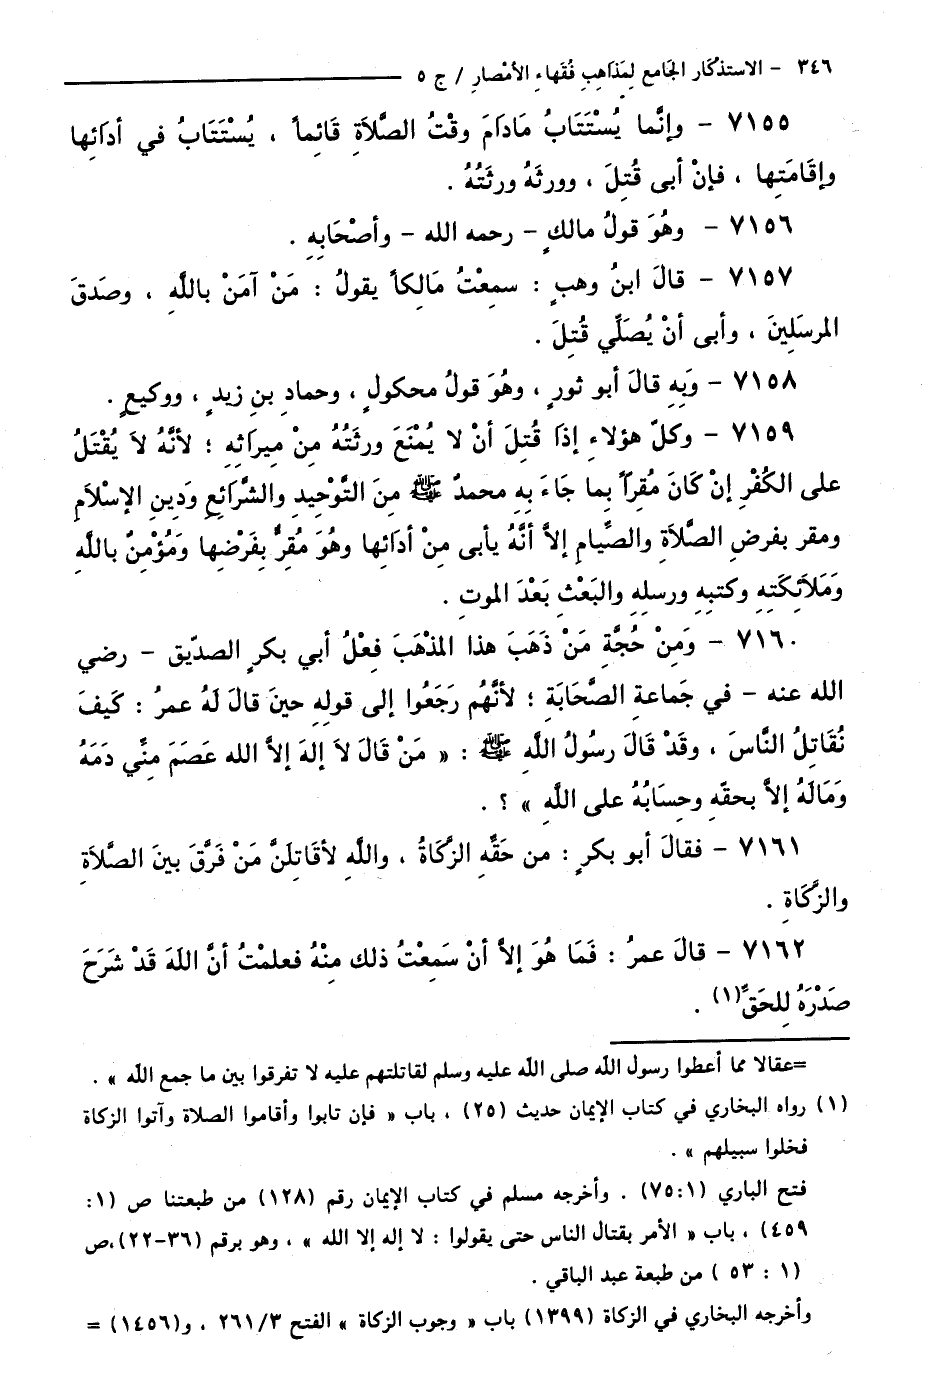 ٣٤٦ - الاستذكار الجامع لِمَذاهِبِ فُقهاءِ الأمْصارِ / ج ٥
٧١٥٥ - وإنَّما يُسْتَتَابُ مَادَامَ وقْتُ الصَّلاَةِ قَائِماً ، يُسْتَتَابُ في أدائِها
وإقَامَتِها ، فإنْ أبى قُتِلَ ، وورثَهُ ورثَتُهُ .
٧١٥٦ - وهُوَ قولُ مالكٍ - رحمه الله - وأصْحَابِهِ .
٧١٥٧ - قالَ ابنُ وهبٍ : سمِعْتُ مَالِكاً يقولُ : مَنْ آمَنَ باللَّهِ ، وصَدقَ
المرسَلِينَ ، وأبى أنْ يُصَلِّي قُتِلَ .
٧١٥٨ - وَبِهِ قالَ أبو ثورٍ ، وهُوَ قولُ محكولٍ ، وحمادِ بنِ زيدٍ ، ووكيعٍ .
٧١٥٩ - وكلّ هؤلاءِ إذَا قُتِلَ أنْ لا يُمْنَعَ ورثَتُهُ مِنْ ميراثِهِ ؛ لأنَّهُ لاَ يُقْتَلُ
على الكُفْرِ إنْ كَانَ مُقِراً بما جَاءَ بِهِ محمدٌ ﷺ مِنَ التَّوْحِيدِ والشَّرائِعِ وَدِينِ الإسْلاَمِ
ومقر بفرضِ الصَّلاَةِ والصِّيامِ إلاَّ أنَّهُ يأبى مِنْ أدَائِها وهُوَ مُقِرٌّ بِفَرْضِها وَمُؤْمِنٌ باللَّهِ
وَمَلاَئِكَتِهِ وكتبِهِ ورسلِهِ والبَعْثِ بَعْدَ الموتِ .
٧١٦٠ - وَمِنْ حُجَّةِ مَنْ ذَهَبَ هذا المذْهَبَ فِعْلُ أبي بكرٍ الصديّق - رضي
الله عنه - في جَماعةِ الصَّحَابَةِ ؛ لأنَّهُم رَجَعُوا إلى قولِهِ حينَ قالَ لَهُ عمرُ : كَيفَ
نُقَاتِلُ النَّاسَ ، وقَدْ قالَ رسُولُ اللَّهِ ﷺ : « مَنْ قَالَ لاَ إلهَ إلاَّ الله عَصَمَ مِنِّي دَمَهُ
وَمَالَهُ إلاَّ بحقّهِ وحِسَابُهُ على اللَّهِ » ؟ .
٧١٦١ - فقالَ أبو بكرٍ : من حَقِّهِ الزَّكَاةُ ، واللَّهِ لأقَاتِلَنَّ مَنْ فَرَّقَ بينَ الصَّلاَةِ
والزَّكَاةِ .
٧١٦٢ - قالَ عمرُ : فَمَا هُوَ إلاَّ أنْ سَمِعْتُ ذلك مِنْهُ فعلمْتُ أنَّ اللهَ قَدْ شَرَحَ
صَدْرَهُ لِلحَقِّ(١) .
=عقالا مما أعطوا رسول الله صلى الله عليه وسلم لقاتلتهم عليه لا تفرقوا بين ما جمع الله » .
(١) رواه البخاري في كتاب الإيمان حديث (٢٥) ، باب « فإن تابوا وأقاموا الصلاة وآتوا الزكاة
فخلوا سبيلهم » .
فتح الباري (٧٥:١) . وأخرجه مسلم في كتاب الإيمان رقم (١٢٨) من طبعتنا ص (١ :
٤٥٩) ، باب « الأمر بقتال الناس حتى يقولوا : لا إله إلا الله » ، وهو برقم (٣٦-٢٢)،ص
(١ : ٥٣ ) من طبعة عبد الباقي .
وأخرجه البخاري في الزكاة (١٣٩٩) باب « وجوب الزكاة » الفتح ٢٦١/٣ ، و(١٤٥٦) =